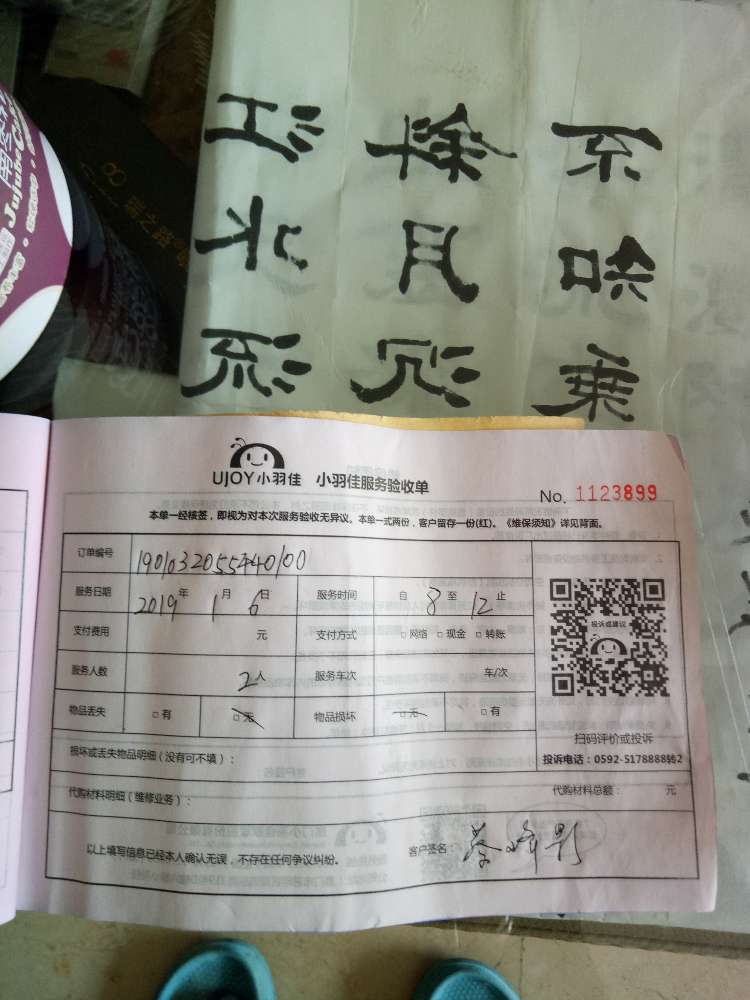 江 斜 不
水 月 知
流 沉 乘
Jujube
UJOY小羽佳 小羽佳服务验收单
No. 1123899
本单一经核签，即视为对本次服务验收无异议。本单一式两份，客户留存一份(红)。《维保须知》详见背面。
订单编号 1901032055440100
服务日期 2019年 1月 6日 服务时间 自 8 至 12 止
支付费用 元 支付方式 □网络 □现金 □转账
服务人数 2人 服务车次 车/次
物品丢失 □有 □无 物品损坏 □无 □有
投诉或建议
扫码评价或投诉
投诉电话：0592-5178888转2
损坏或丢失物品明细（没有可不填）：
代购材料明细（维修业务）： 代购材料总额： 元
以上填写信息已经本人确认无误，不存在任何争议纠纷。 客户签名：